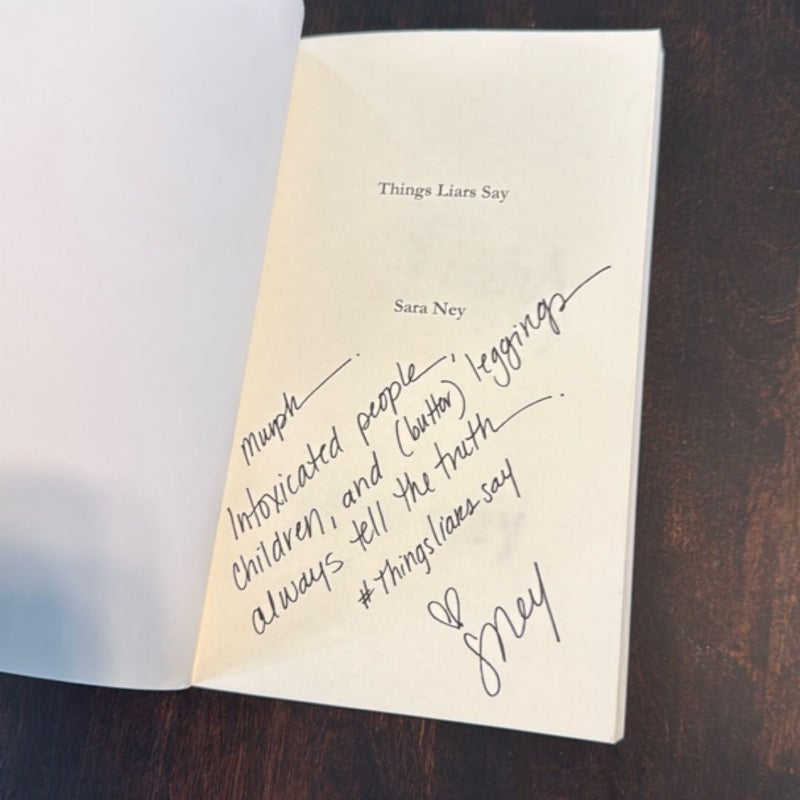 Things Liars Say
Sara Ney
Murph.
Intoxicated people,
children, and (butter) leggings
always tell the truth.
#thingsliarssay
♡ SNey